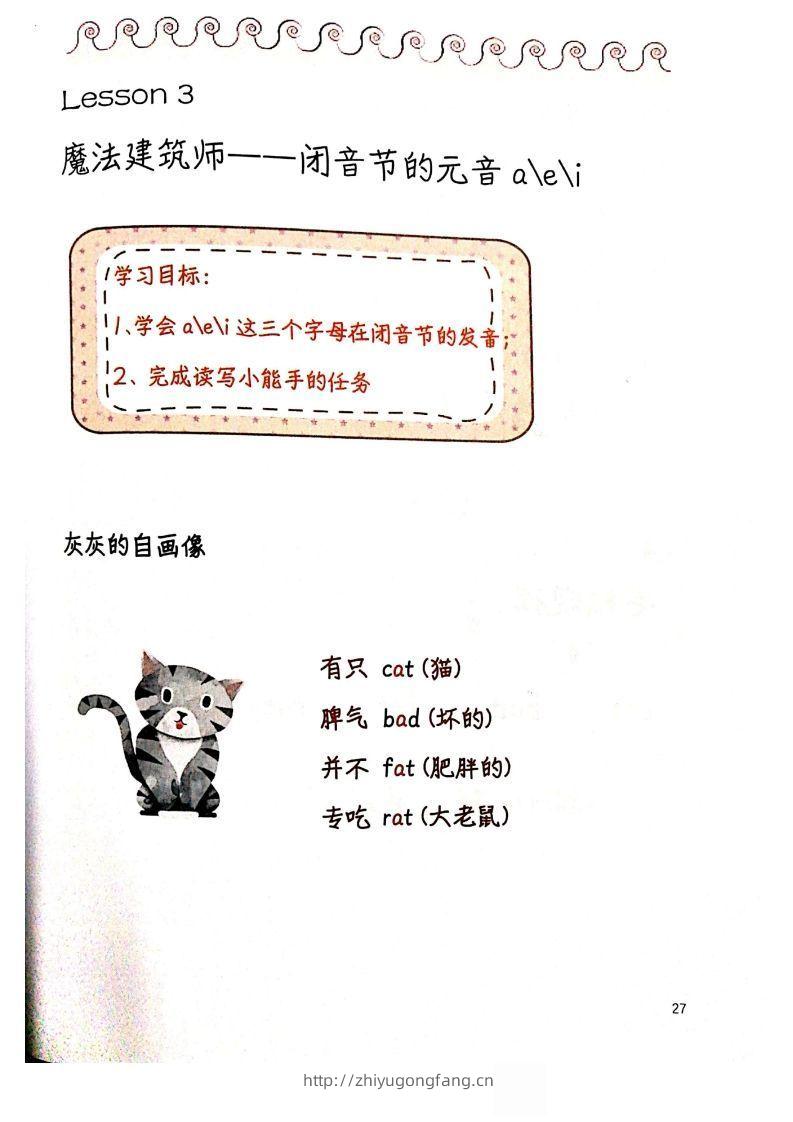 Lesson 3
魔法建筑师——闭音节的元音 a\e\i
学习目标：
1、学会 a\e\i 这三个字母在闭音节的发音；
2、完成读写小能手的任务
灰灰的自画像
有只 cat (猫)
脾气 bad (坏的)
并不 fat (肥胖的)
专吃 rat (大老鼠)
27
http://zhiyugongfang.cn